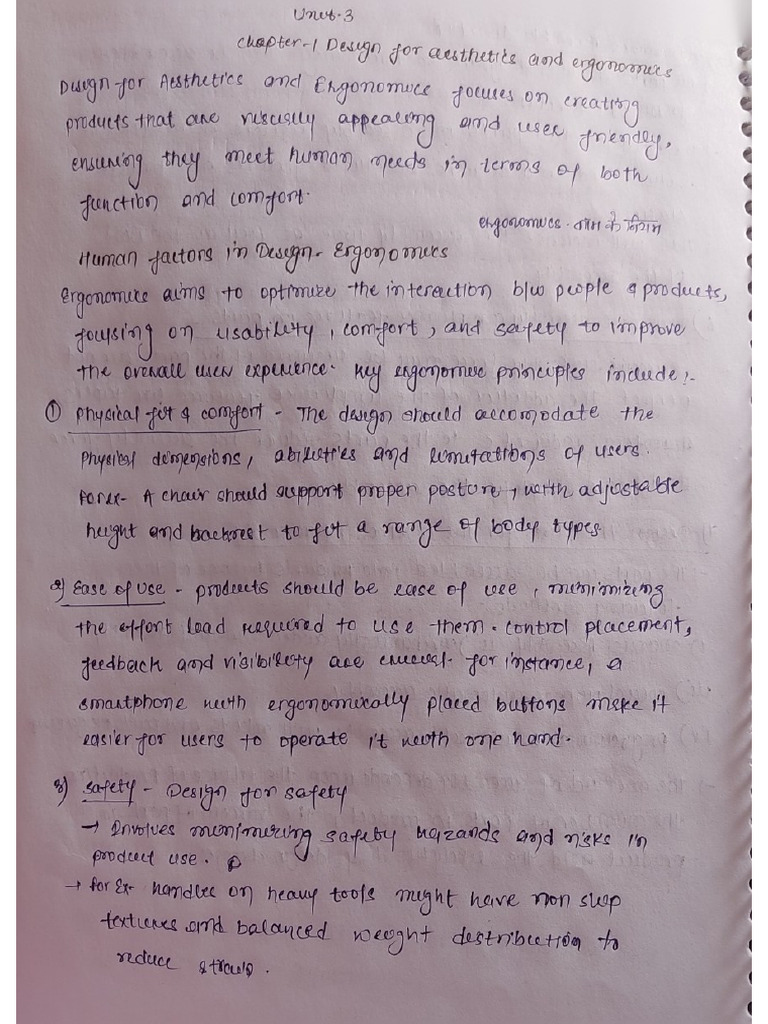 Unit-3
Chapter-1 Design for aesthetics and ergonomics
Design for Aesthetics and Ergonomics focuses on creating
products that are visually appealing and user friendly,
ensuring they meet human needs in terms of both
function and comfort.
ergonomics - काम के नियम
Human factors in Design - Ergonomics
Ergonomics aims to optimize the interaction b/w people & products,
focusing on usability, comfort, and safety to improve
the overall user experience. Key ergonomic principles include :-
① Physical fit & comfort - The design should accomodate the
physical dimensions, abilities and limitations of users.
For ex- A chair should support proper posture, with adjustable
height and backrest to fit a range of body types.
2) Ease of Use - products should be ease of use, minimizing
the effort load required to use them. control placement,
feedback and visibility are crucial. for instance, a
smartphone with ergonomically placed buttons make it
easier for users to operate it with one hand.
3) Safety - Design for safety
→ Involves minimizing safety hazards and risks in
product use.
→ for Ex- handles on heavy tools might have non slip
textures and balanced weight distribution to
reduce strain.